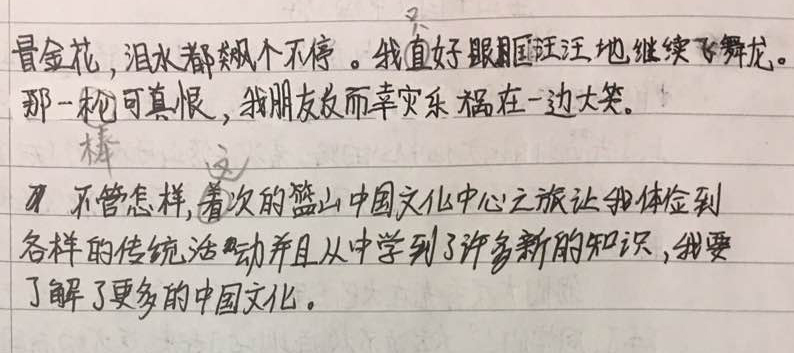 只
冒金花，泪水都飙个不停。我直好眼眶汪汪地继续飞舞龙。
那一可真恨，我朋友反而幸灾乐祸在一边大笑。
棒
这
不管怎样，着次的篮山中国文化中心之旅让我体到
各样的传统活动并且从中学到了许多新的知识，我要
了解了更多的中国文化。